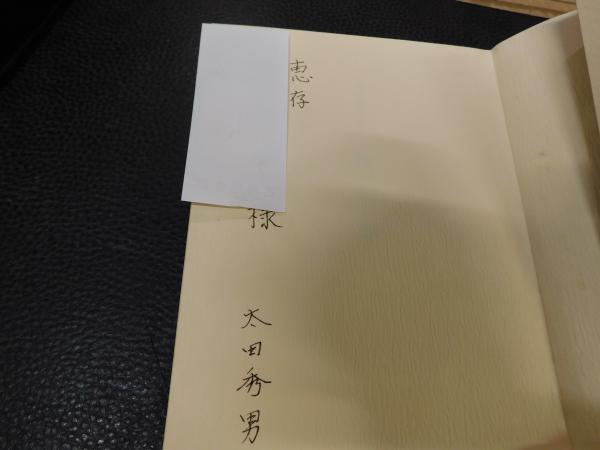 恵存
様
太田秀男